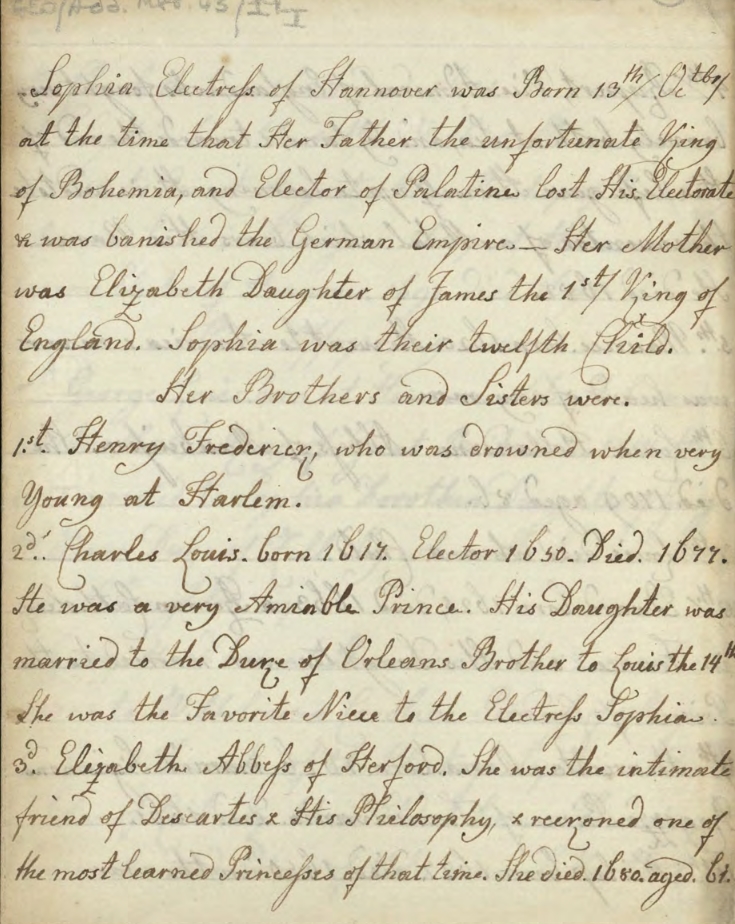 GEO/Add. Mss. 43/II
I
Sophia Electress of Hannover was Born 13th/ Octbr/
at the time that Her Father the unfortunate King
of Bohemia, and Elector of Palatine lost His Electorate
& was banished the German Empire. — Her Mother
was Elizabeth Daughter of James the 1st/ King of
England. Sophia was their twelfth Child.
Her Brothers and Sisters were.
1st. Henry Frederick, who was drowned when very
Young at Harlem.
2d. Charles Louis. born 1617. Elector 1650. Died. 1677.
He was a very Amiable Prince. His Daughter was
married to the Duke of Orleans Brother to Louis the 14th
She was the Favorite Niece to the Electress Sophia.
3d. Elizabeth Abbess of Herford. She was the intimate
friend of Descartes & His Philosophy, & reckoned one of
the most learned Princesses of that time. She died. 1680. aged. 61.